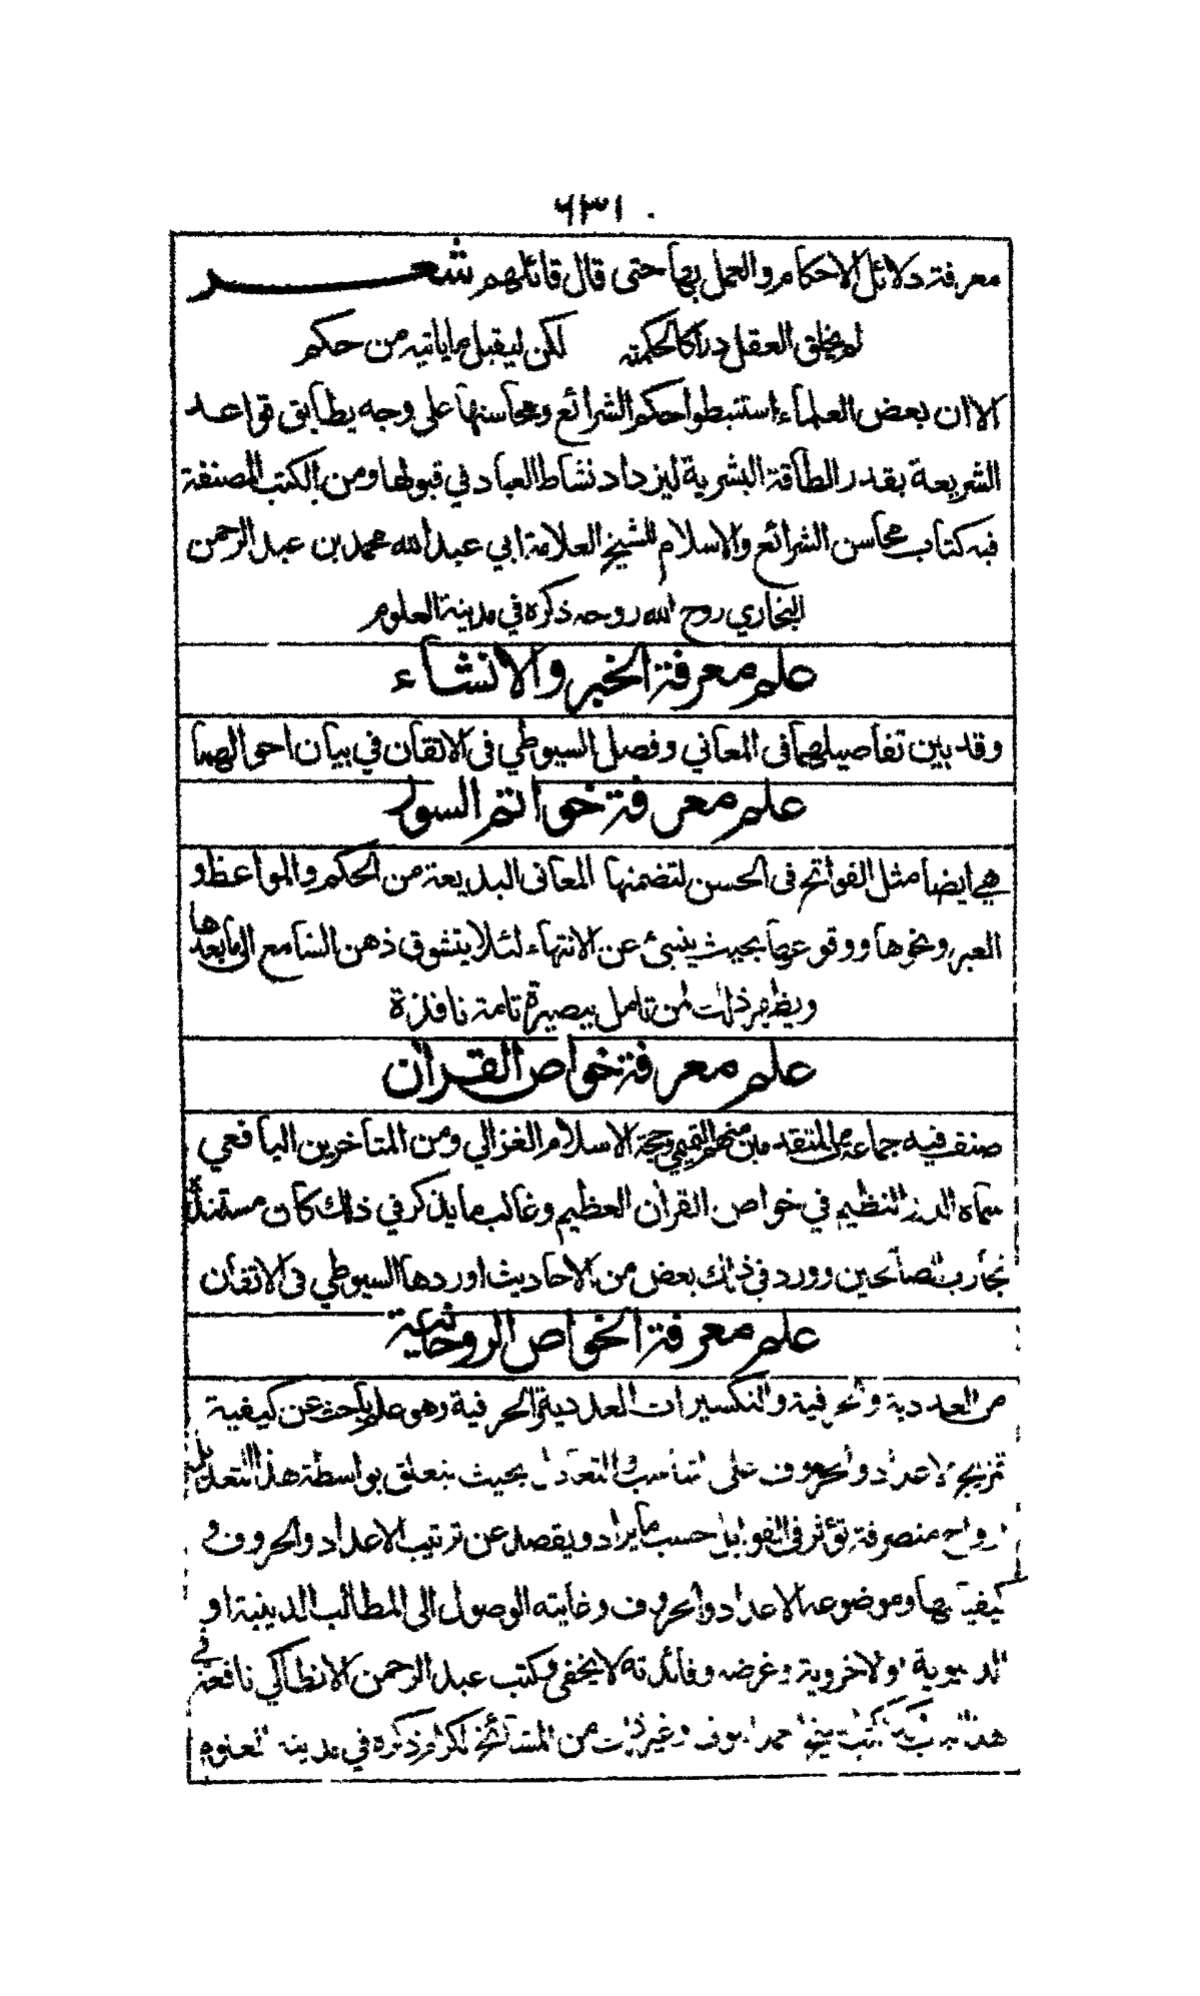 ٦٣١
معرفة دلائل الاحكام والعمل بها حتى قال قائلهم شعر
لم يخلق العقل دراكا لحكمته لكن ليقبل ما ياتيه من حكم
الا ان بعض العلماء استنبطوا حكم الشرائع ومحاسنها على وجه يطابق قواعد
الشريعة بقدر الطاقة البشرية ليزداد نشاط العباد في قبولها ومن الكتب المصنفة
فيه كتاب محاسن الشرائع والاسلام للشيخ العلامة ابي عبد الله محمد بن عبد الرحمن
البخاري روح الله روحه ذكره في مدينة العلوم
علم معرفة الخبر والانشاء
وقد بين تفاصيلهما في المعاني وفصل السيوطي في الاتقان في بيان احوالهما
علم معرفة خواتم السور
هي ايضا مثل الفواتح في الحسن لتضمنها المعاني البديعة من الحكم والمواعظ و
العبر ونحوها ووقوعها بحيث ينبئ عن الانتهاء لئلا يتشوق ذهن السامع الى ما بعدها
ويظهر ذلك لمن تامل ببصيرة تامة نافذة
علم معرفة خواص القرآن
صنف فيه جماعة من المتقدمين منهم التميمي وحجة الاسلام الغزالي ومن المتأخرين اليافعي
سماه الدر النظيم في خواص القرآن العظيم وغالب ما يذكر في ذلك كان مستنده
تجارب الصالحين وورد في ذلك بعض من الاحاديث اوردها السيوطي في الاتقان
علم معرفة الخواص الروحانية
من العددية والحرفية والتكسيرات العددية والحرفية وهو علم باحث عن كيفية
تمزيج الاعداد والحروف على التناسب والتعادل بحيث يتعلق بواسطة هذا التعديل
ارواح متصرفة تؤثر في القوابل حسب ما يراد ويقصد عن ترتيب الاعداد والحروف و
كيفيتها وموضوعه الاعداد والحروف وغايته الوصول الى المطالب الدينية او
الدنيوية او الاخروية وغرضه وفائدته لا يخفى وكتب عبد الرحمن الانطاكي نافعة في
هذا الباب كتب الشيخ احمد البوني وغير ذلك من المشائخ الكرام ذكره في مدينة العلوم